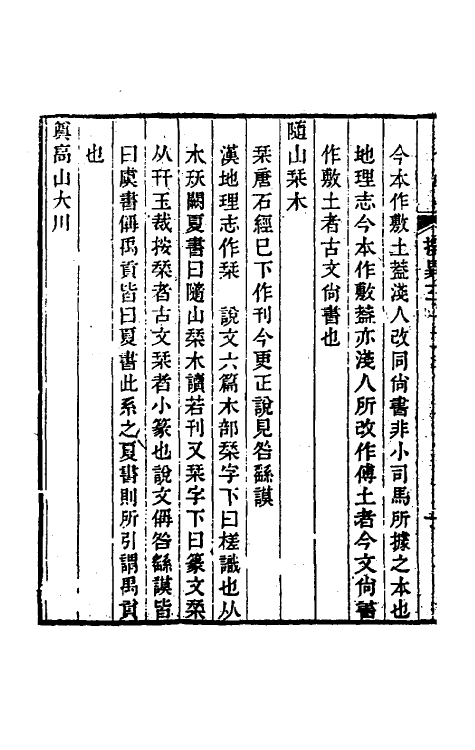 今本作敷土葢淺人改同尙書非小司馬所據之本也
地理志今本作敷葢亦淺人所改作傅土者今文尙書
作敷土者古文尙書也
隨山栞木
栞唐石經已下作刊今更正說見咎繇謨
漢地理志作栞　說文六篇木部栞字下曰槎識也从
木㺿闕夏書曰隨山栞木讀若刊又栞字下曰篆文㮮
从幵玉裁按㮮者古文栞者小篆也說文偁咎繇謨皆
曰虞書偁禹貢皆曰夏書此系之夏書則所引謂禹貢
也
奠高山大川